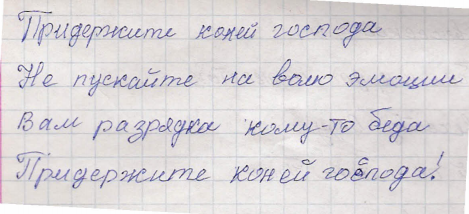 Придержите коней господа
Не пускайте на волю эмоции
Вам разрядка кому-то беда
Придержите коней господа!